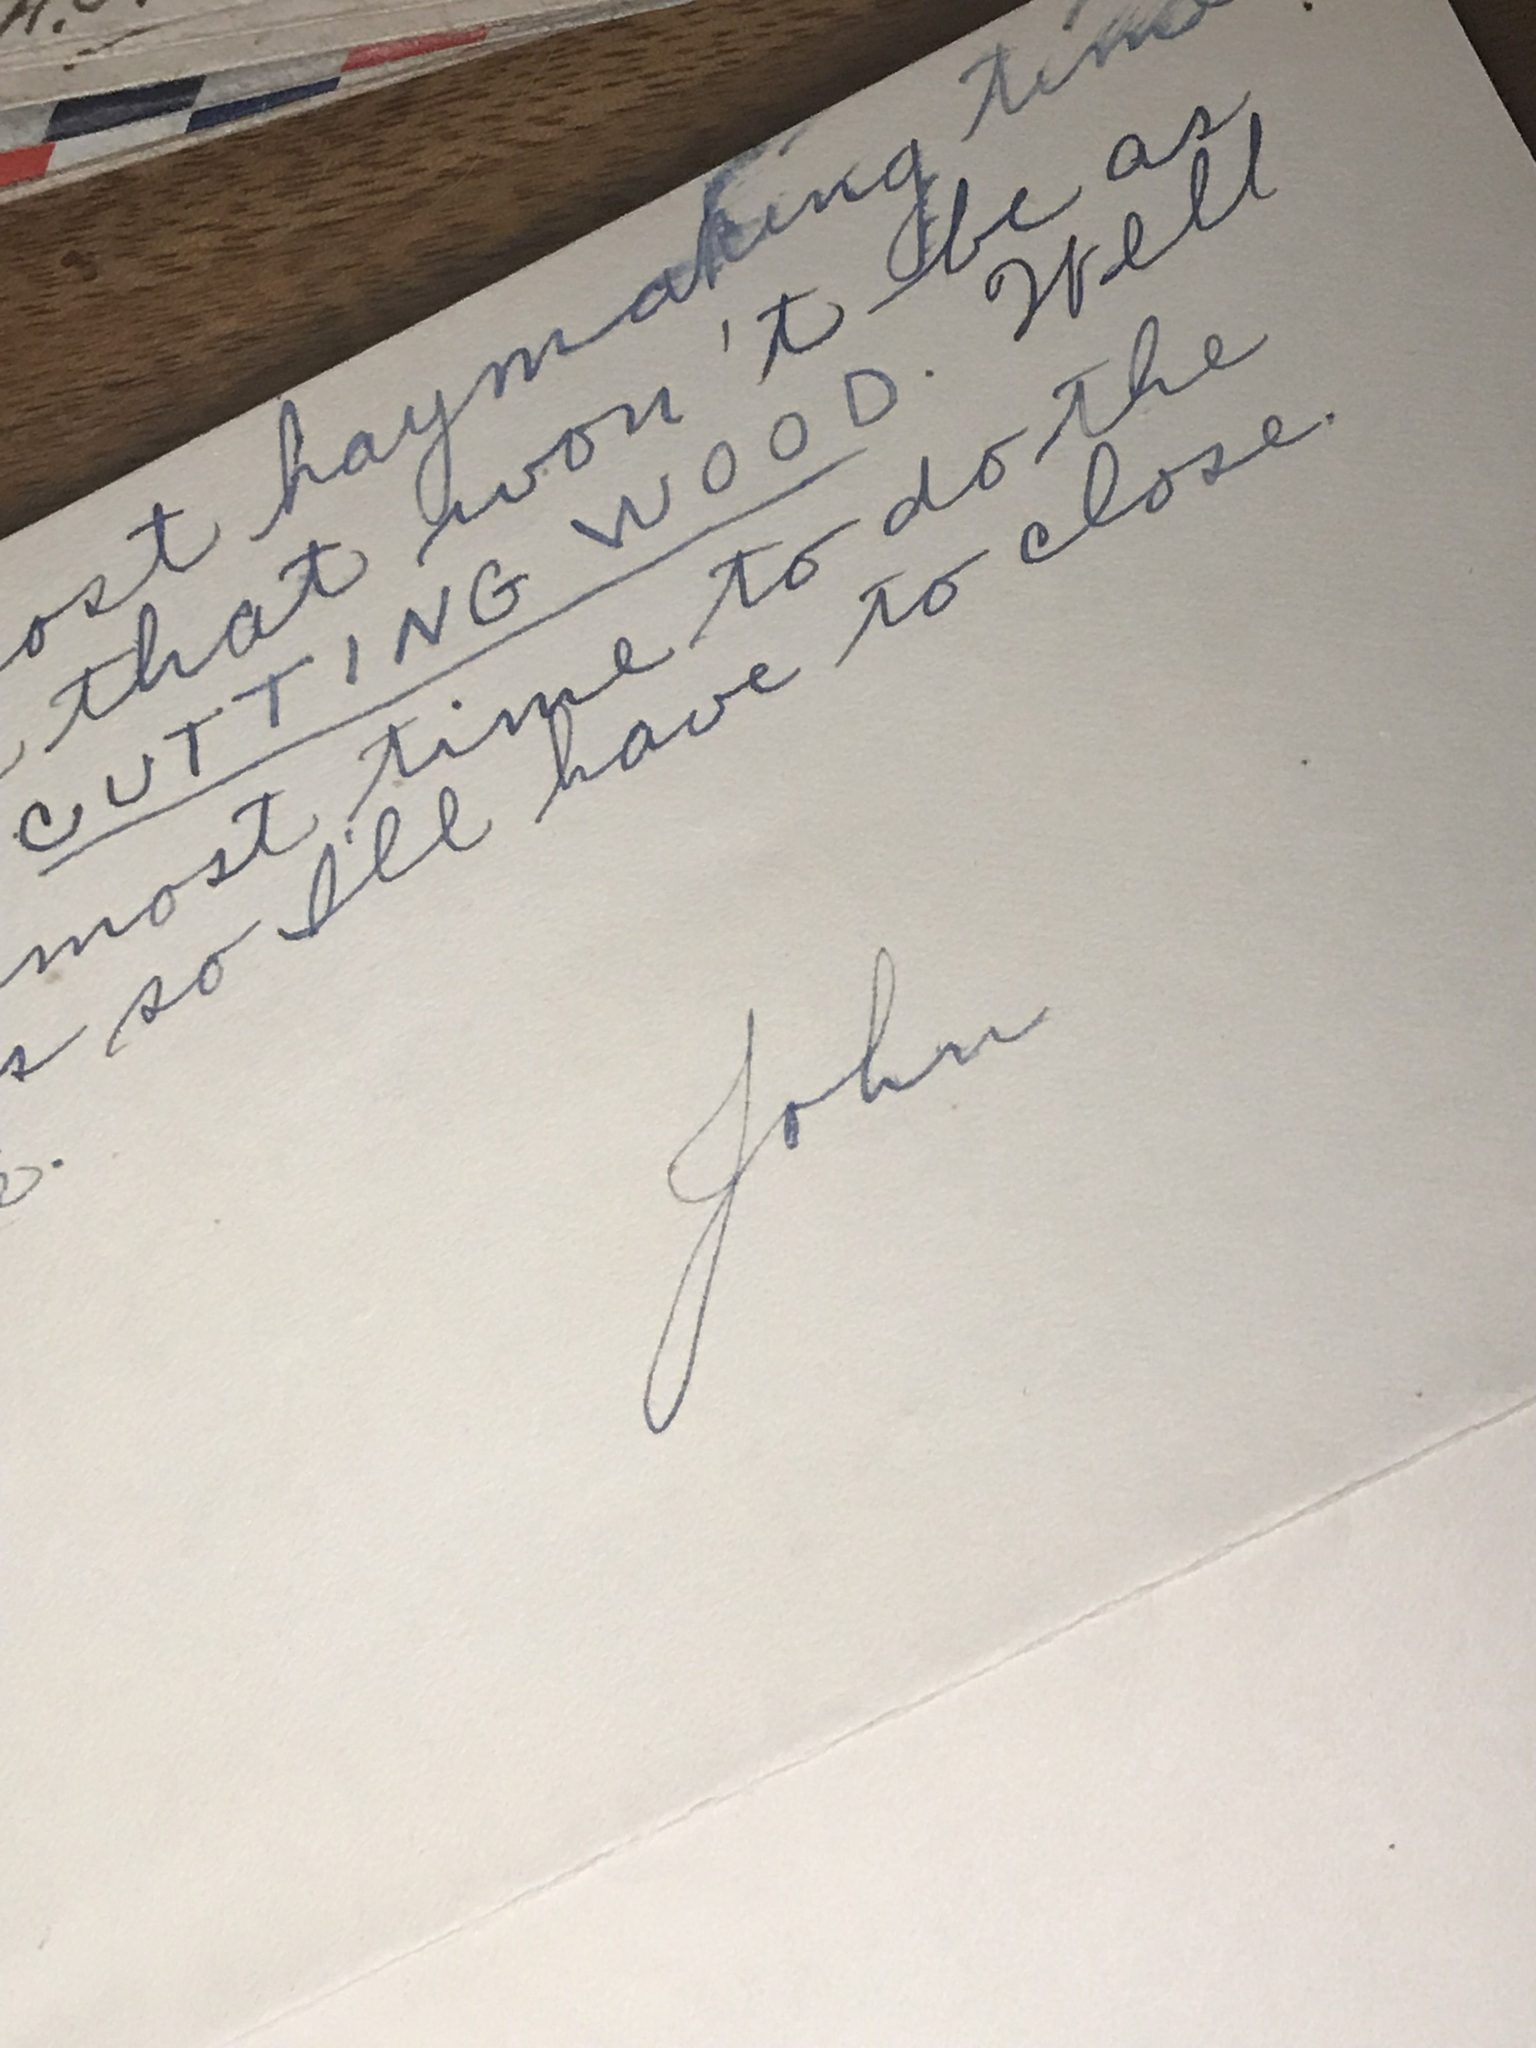 haymaking time
that won't be as
CUTTING WOOD. Well
most time to do the
so I'll have to close.
John